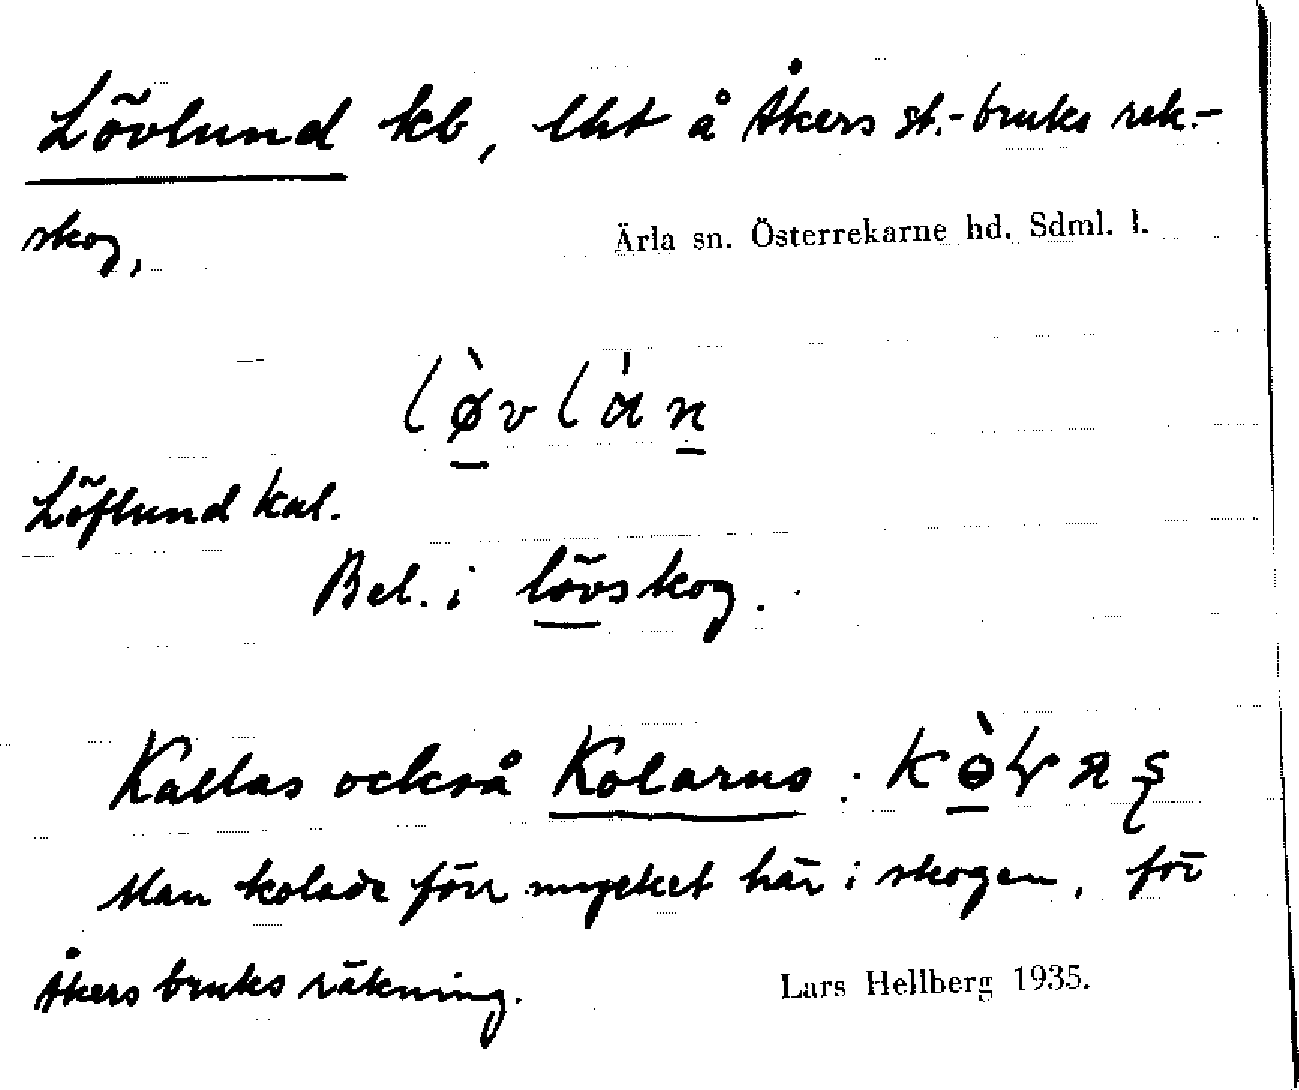 Lövlund kb, lht å Åkers st.-bruks rek.-
skog,
Ärla sn. Österrekarne hd. Sdml. l.
Löflund kal.
Bel. i lövskog.
Kallas också Kolarns :
Man kolade förr mycket här i skogen, för
Åkers bruks räkning.
Lars Hellberg 1935.